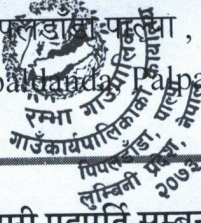 पिपलडाँडा पाल्पा ,
paldanda, Palpa
रम्भा गाउँपालिका
गाउँकार्यपालिकाको कार्यालय
पिपलडाँडा, पाल्पा
लुम्बिनी प्रदेश, नेपाल
२०७३